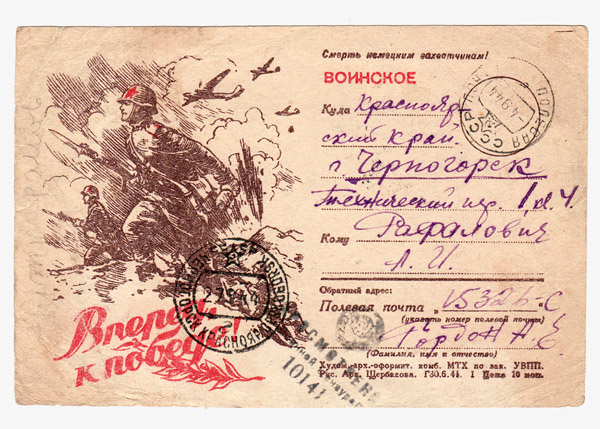 Смерть немецким захватчикам!
ВОИНСКОЕ
Куда Краснояр
ский край.
г. Черногорск
Технический пер. 1 кв. 4.
Рафалович
Кому
Л. И.
Обратный адрес:
Полевая почта 15326-С
(указать номер полевой почты)
Гордон А. Е
(Фамилия, имя и отчество)
Худож.-арх.-оформит. комб. МТХ по зак. УВПП.
Рис. Арк. Щербакова. Г30.6.44. 1 Цена 10 коп.
Вперед
к победе!
ПОЛЕВАЯ
СССР
-4.9.44
ЧЕРНОГОРСК КРАСНОЯРСК
44
ПРОСМОТРЕНО
Военной Цензурой
10141